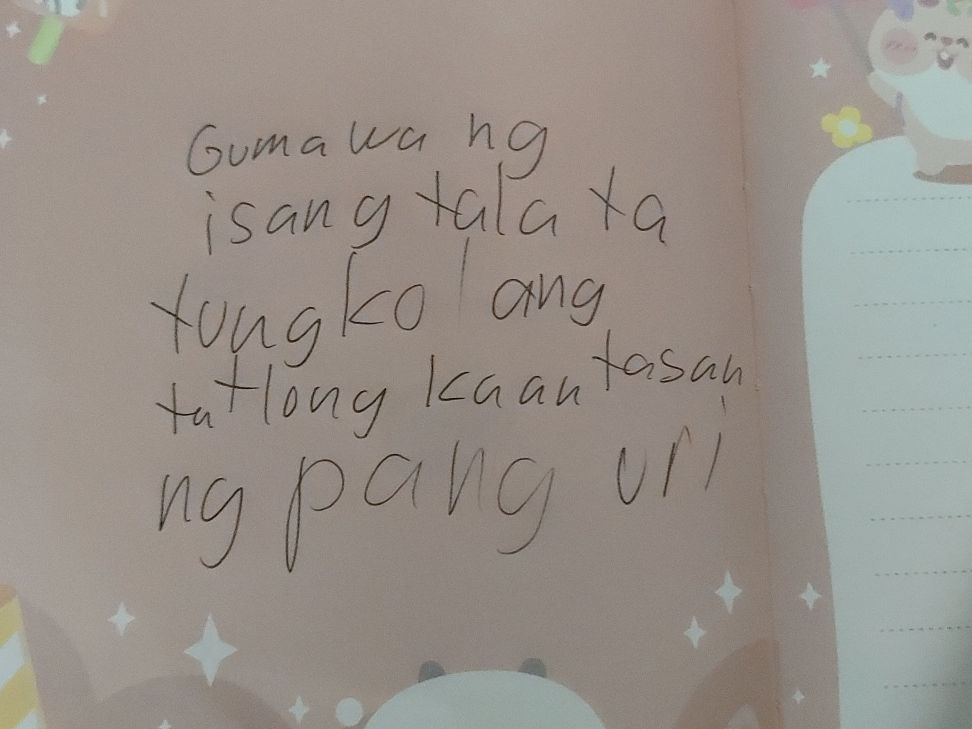 Gumawa ng
isang talata
tungkol ang
tatlong kaantasan
ng pang uri